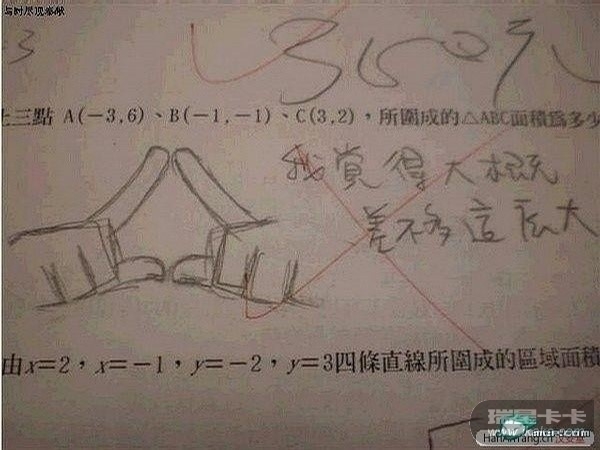 与时尽观察献
-3
360元
上三點 A(-3,6)、B(-1,-1)、C(3,2)，所圍成的△ABC面積為多少
我覺得大概
差不多這么大
由x=2，x=-1，y=-2，y=3四條直線所圍成的區域面積
瑞星卡卡